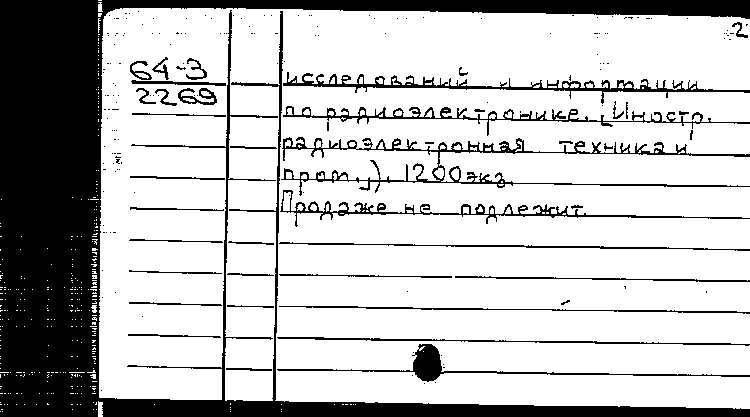 2
64-3
2269
исследований и информации
по радиоэлектронике. [Иностр.
радиоэлектронная техника и
пром.]). 1200 экз.
Продаже не подлежит.